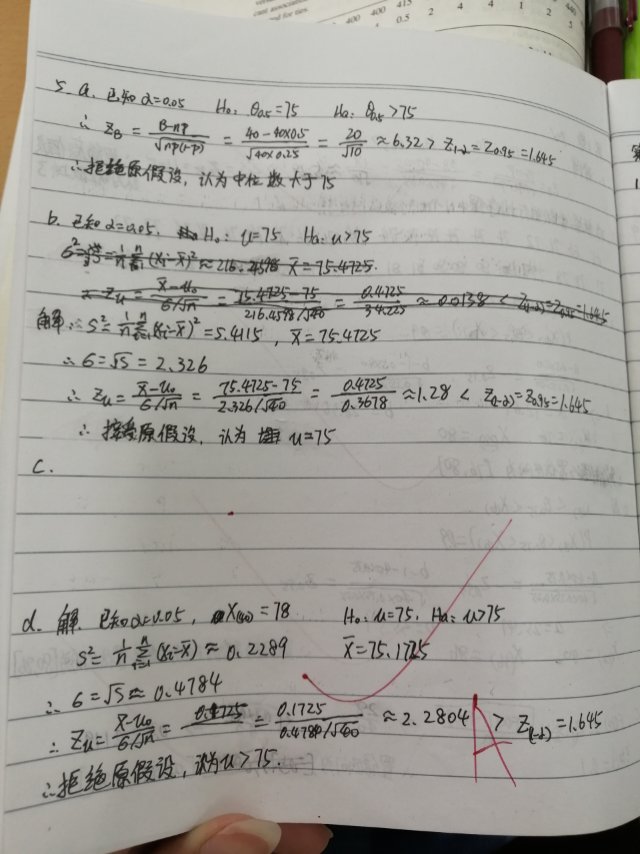 400 400 415
0.5 2 4 4 1 2 5
and for ties.
5 a. 已知 α=0.05 H₀: θ₀.₅=75 Hₐ: θ₀.₅>75
∴ Z_B = (B-np)/√(np(1-p)) = (40-40×0.5)/√(40×0.25) = 20/√10 ≈ 6.32 > Z_{1-α} = Z_{0.95} = 1.645
∴ 拒绝原假设, 认为中位数大于75
b. 已知 α=0.05, H₀: u=75 Hₐ: u>75
6² = 1/n Σ(Xᵢ-X̄)² ≈ 216.4598 X̄ = 75.4725.
∴ Z_u = (X̄-u₀)/(6/√n) = (75.4725-75)/(216.4598/√40) = 0.4725/34.225 ≈ 0.0138 < Z_{(1-α)} = Z_{0.95} = 1.645
解: ∵ S² = 1/n Σ(Xᵢ-X̄)² = 5.4115, X̄ = 75.4725
∴ 6 = √S = 2.326
∴ Z_u = (X̄-u₀)/(6/√n) = (75.4725-75)/(2.326/√40) = 0.4725/0.3678 ≈ 1.28 < Z_{(1-α)} = Z_{0.95} = 1.645
∴ 接受原假设, 认为 u=75
c.
d. 解 已知 α=0.05, X₍₄₀₎ = 78 H₀: u=75, Hₐ: u>75
S² = 1/n Σ(Xᵢ-X̄) ≈ 0.2289 X̄ = 75.1725
∴ 6 = √S ≈ 0.4784
∴ Z_u = (X̄-u₀)/(6/√n) = 0.1725 = 0.1725/(0.4784/√40) ≈ 2.2804 > Z_{(1-α)} = 1.645
A
∴ 拒绝原假设, 认为 u>75.